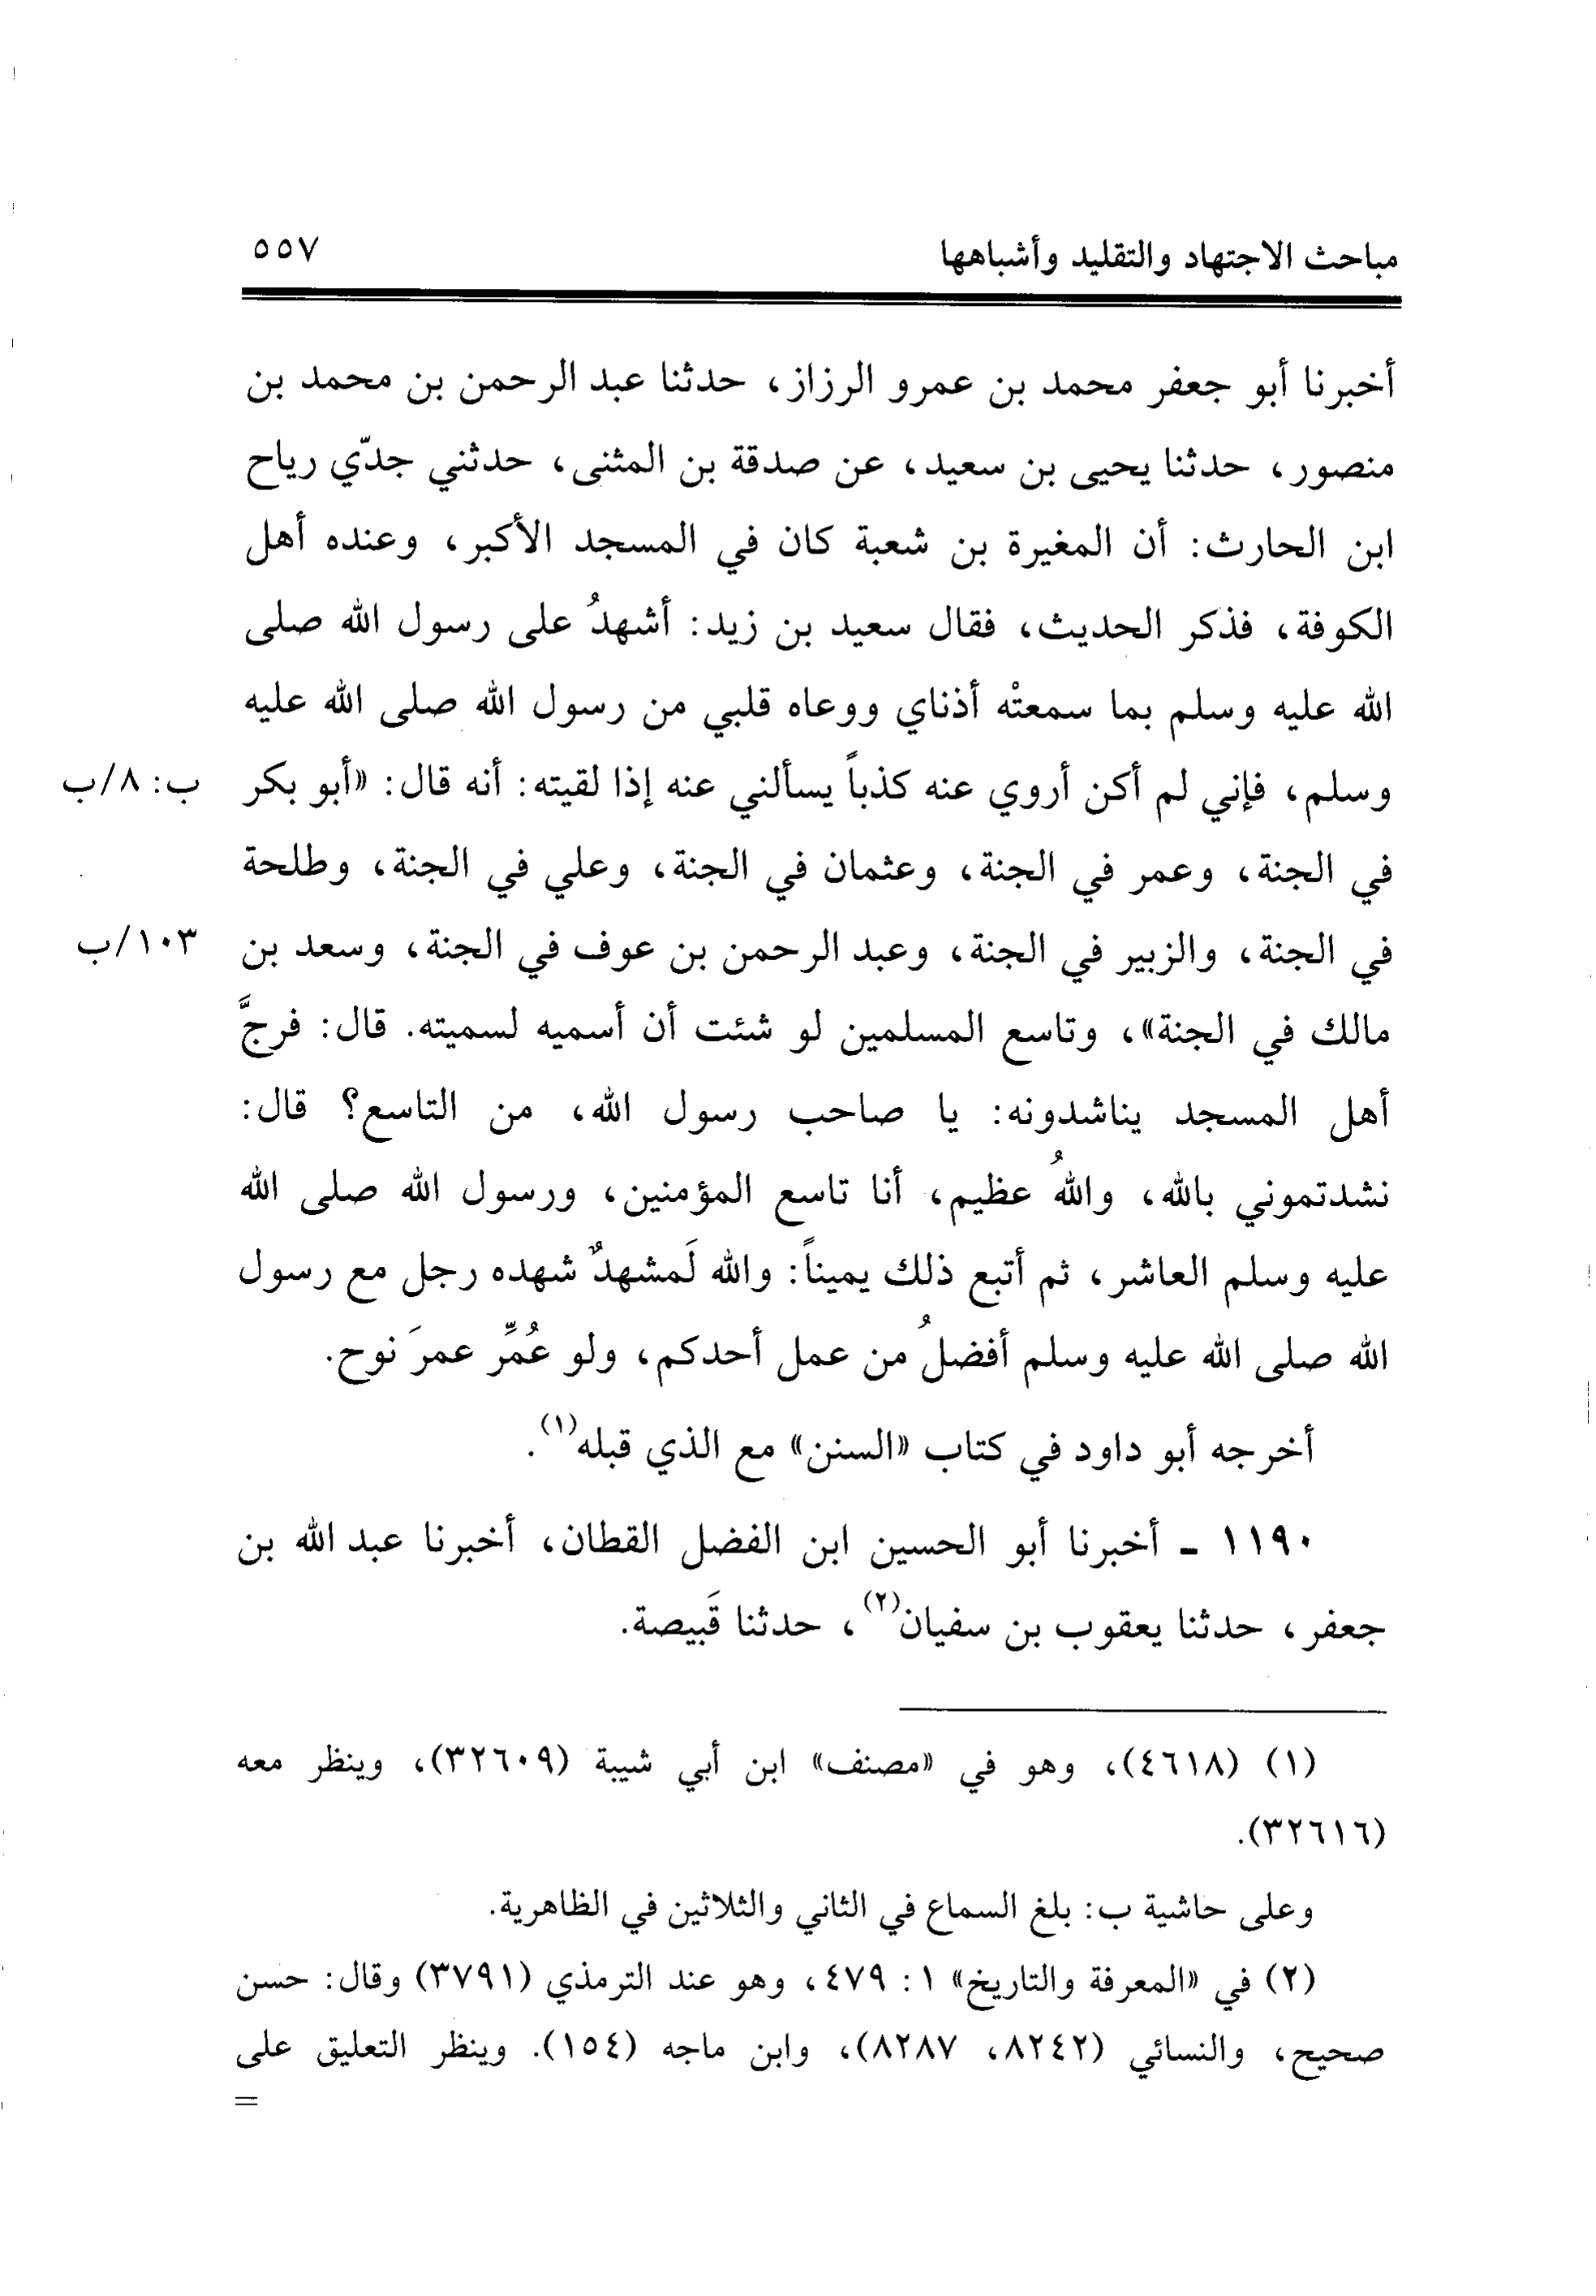 مباحث الاجتهاد والتقليد وأشباهها ٥٥٧
أخبرنا أبو جعفر محمد بن عمرو الرزاز، حدثنا عبد الرحمن بن محمد بن
منصور، حدثنا يحيى بن سعيد، عن صدقة بن المثنى، حدثني جدّي رياح
ابن الحارث: أن المغيرة بن شعبة كان في المسجد الأكبر، وعنده أهل
الكوفة، فذكر الحديث، فقال سعيد بن زيد: أشهدُ على رسول الله صلى
الله عليه وسلم بما سمعتْه أذناي ووعاه قلبي من رسول الله صلى الله عليه
وسلم، فإني لم أكن أروي عنه كذباً يسألني عنه إذا لقيته: أنه قال: «أبو بكر ب: ٨/ب
في الجنة، وعمر في الجنة، وعثمان في الجنة، وعلي في الجنة، وطلحة
في الجنة، والزبير في الجنة، وعبد الرحمن بن عوف في الجنة، وسعد بن ١٠٣/ب
مالك في الجنة»، وتاسع المسلمين لو شئت أن أسميه لسميته. قال: فرجَّ
أهل المسجد يناشدونه: يا صاحب رسول الله، من التاسع؟ قال:
نشدتموني بالله، واللهُ عظيم، أنا تاسع المؤمنين، ورسول الله صلى الله
عليه وسلم العاشر، ثم أتبع ذلك يميناً: والله لَمشهدٌ شهده رجل مع رسول
الله صلى الله عليه وسلم أفضلُ من عمل أحدكم، ولو عُمِّر عمرَ نوح.
أخرجه أبو داود في كتاب «السنن» مع الذي قبله(١).
١١٩٠ ـ أخبرنا أبو الحسين ابن الفضل القطان، أخبرنا عبد الله بن
جعفر، حدثنا يعقوب بن سفيان(٢)، حدثنا قَبيصة.
(١) (٤٦١٨)، وهو في «مصنف» ابن أبي شيبة (٣٢٦٠٩)، وينظر معه
(٣٢٦١٦).
وعلى حاشية ب: بلغ السماع في الثاني والثلاثين في الظاهرية.
(٢) في «المعرفة والتاريخ» ١: ٤٧٩، وهو عند الترمذي (٣٧٩١) وقال: حسن
صحيح، والنسائي (٨٢٤٢، ٨٢٨٧)، وابن ماجه (١٥٤). وينظر التعليق على
=